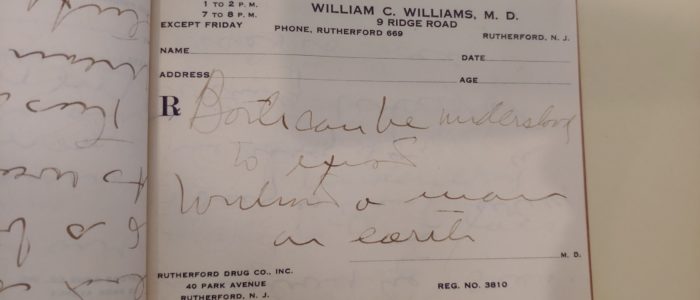 1 TO 2 P. M.
7 TO 8 P. M.
EXCEPT FRIDAY
WILLIAM C. WILLIAMS, M. D.
9 RIDGE ROAD
PHONE, RUTHERFORD 669
RUTHERFORD, N. J.
NAME DATE
ADDRESS AGE
℞ Both can be understood
to exist
Without a man
on earth
M. D.
RUTHERFORD DRUG CO., INC.
40 PARK AVENUE
RUTHERFORD, N. J.
REG. NO. 3810